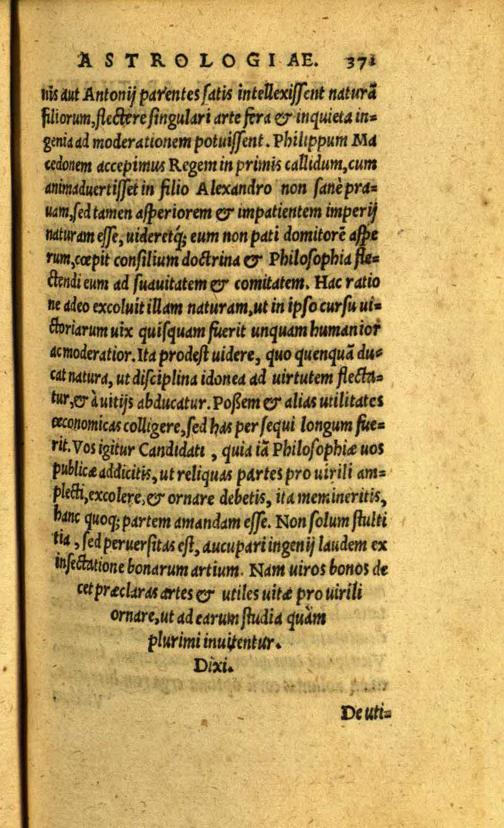 ASTROLOGIAE. 371
nis aut Antonij parentes satis intellexissent naturā
filiorum, flectere singulari arte fera & inquieta in=
genia ad moderationem potuissent. Philippum Ma
cedonem accepimus Regem in primis callidum, cum
animaduertisset in filio Alexandro non sanè pra=
uam, sed tamen asperiorem & impatientem imperij
naturam esse, uideretq́; eum non pati domitorē aspe
rum, cœpit consilium doctrina & Philosophia fle=
ctendi eum ad suauitatem & comitatem. Hac ratio
ne adeo excoluit illam naturam, ut in ipso cursu ui=
ctoriarum uix quisquam fuerit unquam humanior
ac moderatior. Ita prodest uidere, quo quenquā du=
cat natura, ut disciplina idonea ad uirtutem flecta=
tur, & à uitijs abducatur. Possem & alias utilitates
œconomicas colligere, sed has persequi longum fue=
rit. Vos igitur Candidati, quia iā Philosophiæ uos
publicæ addicitis, ut reliquas partes pro uirili am=
plecti, excolere, & ornare debetis, ita memineritis,
hanc quoq; partem amandam esse. Non solum stulti
tia, sed peruersitas est, aucupari ingenij laudem ex
insectatione bonarum artium. Nam uiros bonos de
cet præclaras artes & utiles uitæ pro uirili
ornare, ut ad earum studia quàm
plurimi inuitentur.
Dixi.
De uti=